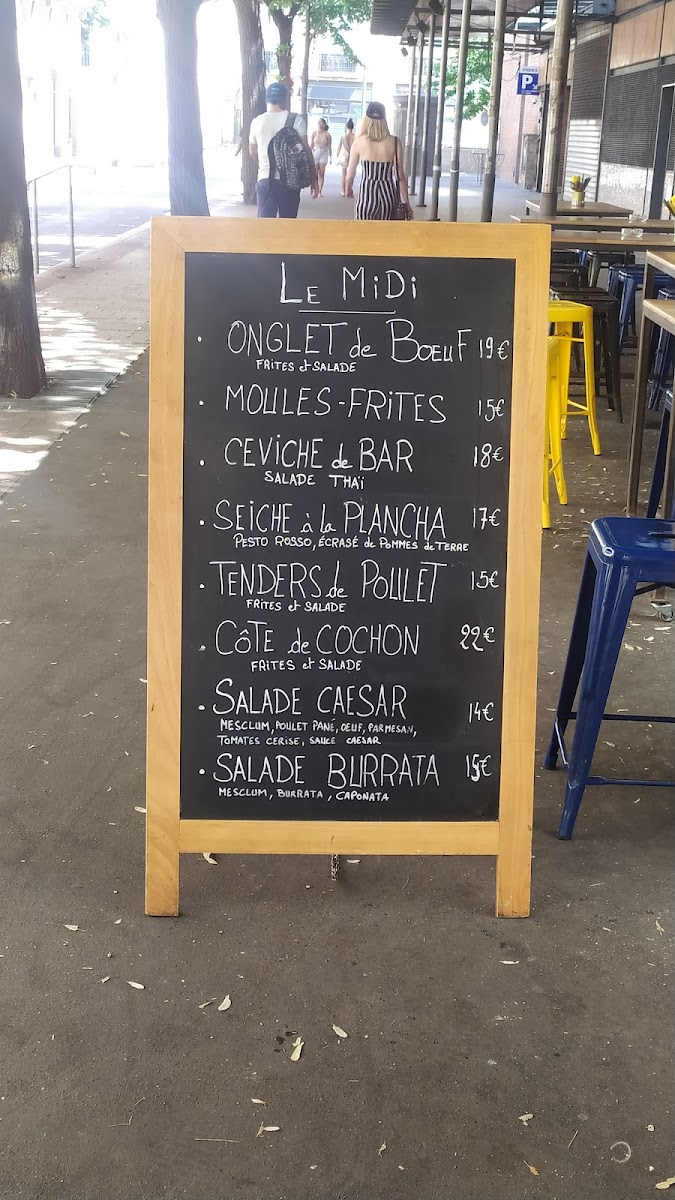 P
LE MiDi
• ONGLET de BOEUF 19€
FRITES et SALADE
• MOULES-FRITES 15€
• CEVICHE de BAR 18€
SALADE THAÏ
• SEICHE à la PLANCHA 17€
PESTO ROSSO, ÉCRASÉ de POMMES de TERRE
• TENDERS de POULET 15€
FRITES et SALADE
• CÔTE de COCHON 22€
FRITES et SALADE
• SALADE CAESAR 14€
MESCLUM, POULET PANÉ, OEUF, PARMESAN,
TOMATES CERISE, SAUCE CAESAR
• SALADE BURRATA 15€
MESCLUM, BURRATA, CAPONATA